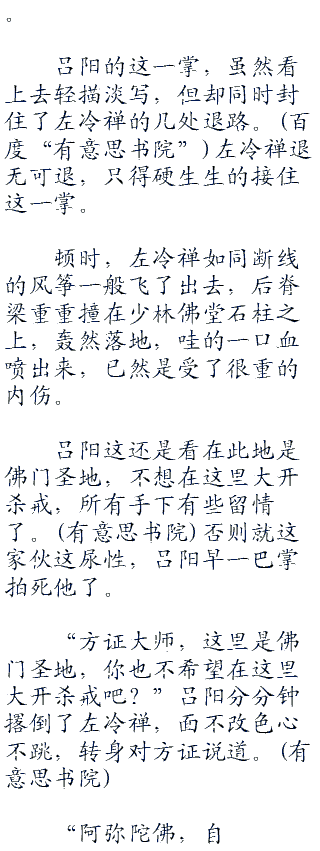 。
吕阳的这一掌，虽然看
上去轻描淡写，但却同时封
住了左冷禅的几处退路。(百
度“有意思书院”)左冷禅退
无可退，只得硬生生的接住
这一掌。
顿时，左冷禅如同断线
的风筝一般飞了出去，后脊
梁重重撞在少林佛堂石柱之
上，轰然落地，哇的一口血
喷出来，已然是受了很重的
内伤。
吕阳这还是看在此地是
佛门圣地，不想在这里大开
杀戒，所有手下有些留情
了。(有意思书院)否则就这
家伙这尿性，吕阳早一巴掌
拍死他了。
“方证大师，这里是佛
门圣地，你也不希望在这里
大开杀戒吧？”吕阳分分钟
撂倒了左冷禅，面不改色心
不跳，转身对方证说道。(有
意思书院)
“阿弥陀佛，自